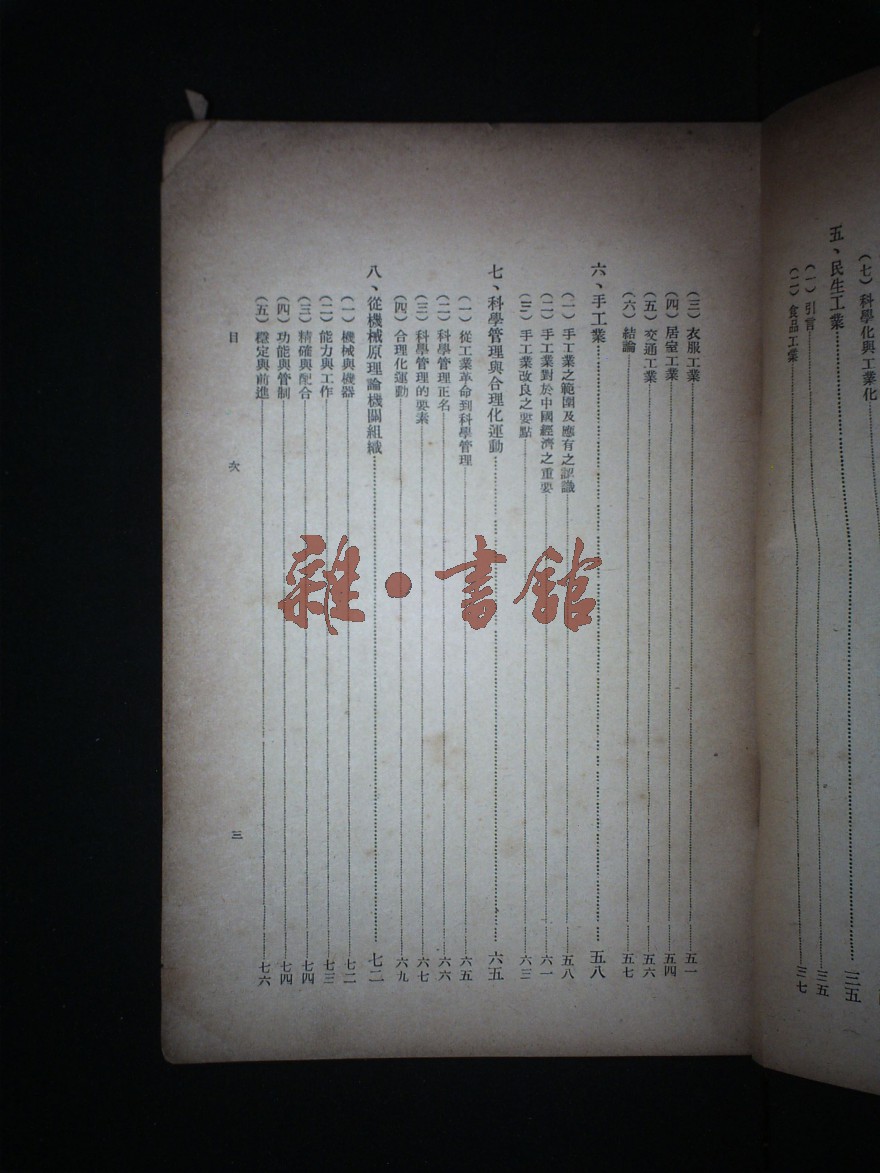 （七）科學化與工業化
五、民生工業……三五
（一）引言……三五
（二）食品工業……三七
（三）衣服工業……五一
（四）居室工業……五四
（五）交通工業……五六
（六）結論……五七
六、手工業……五八
（一）手工業之範圍及應有之認識……五八
（二）手工業對於中國經濟之重要……六一
（三）手工業改良之要點……六三
七、科學管理與合理化運動……六五
（一）從工業革命到科學管理……六五
（二）科學管理正名……六六
（三）科學管理的要素……六七
（四）合理化運動……六九
八、從機械原理論機關組織……七二
（一）機械與機器……七二
（二）能力與工作……七三
（三）精確與配合……七四
（四）功能與管制……七四
（五）穩定與前進……七六
目次
三
雜·書館